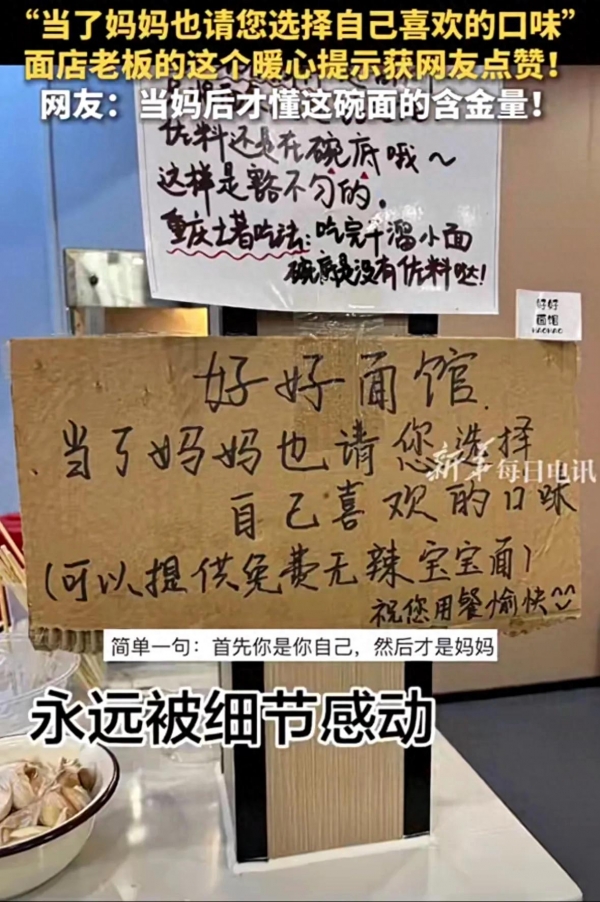 “当了妈妈也请您选择自己喜欢的口味”
面店老板的这个暖心提示获网友点赞！
网友：当妈后才懂这碗面的含金量！
佐料还是在碗底哦～
这样是豁不匀的.
重庆土著吃法：吃完干溜小面
碗底是没有佐料哒！
好好
面馆
HAOHAO
好好面馆.
当了妈妈也请您选择
新华每日电讯
自己喜欢的口味
（可以提供免费无辣宝宝面）
祝您用餐愉快
简单一句：首先你是你自己，然后才是妈妈
永远被细节感动